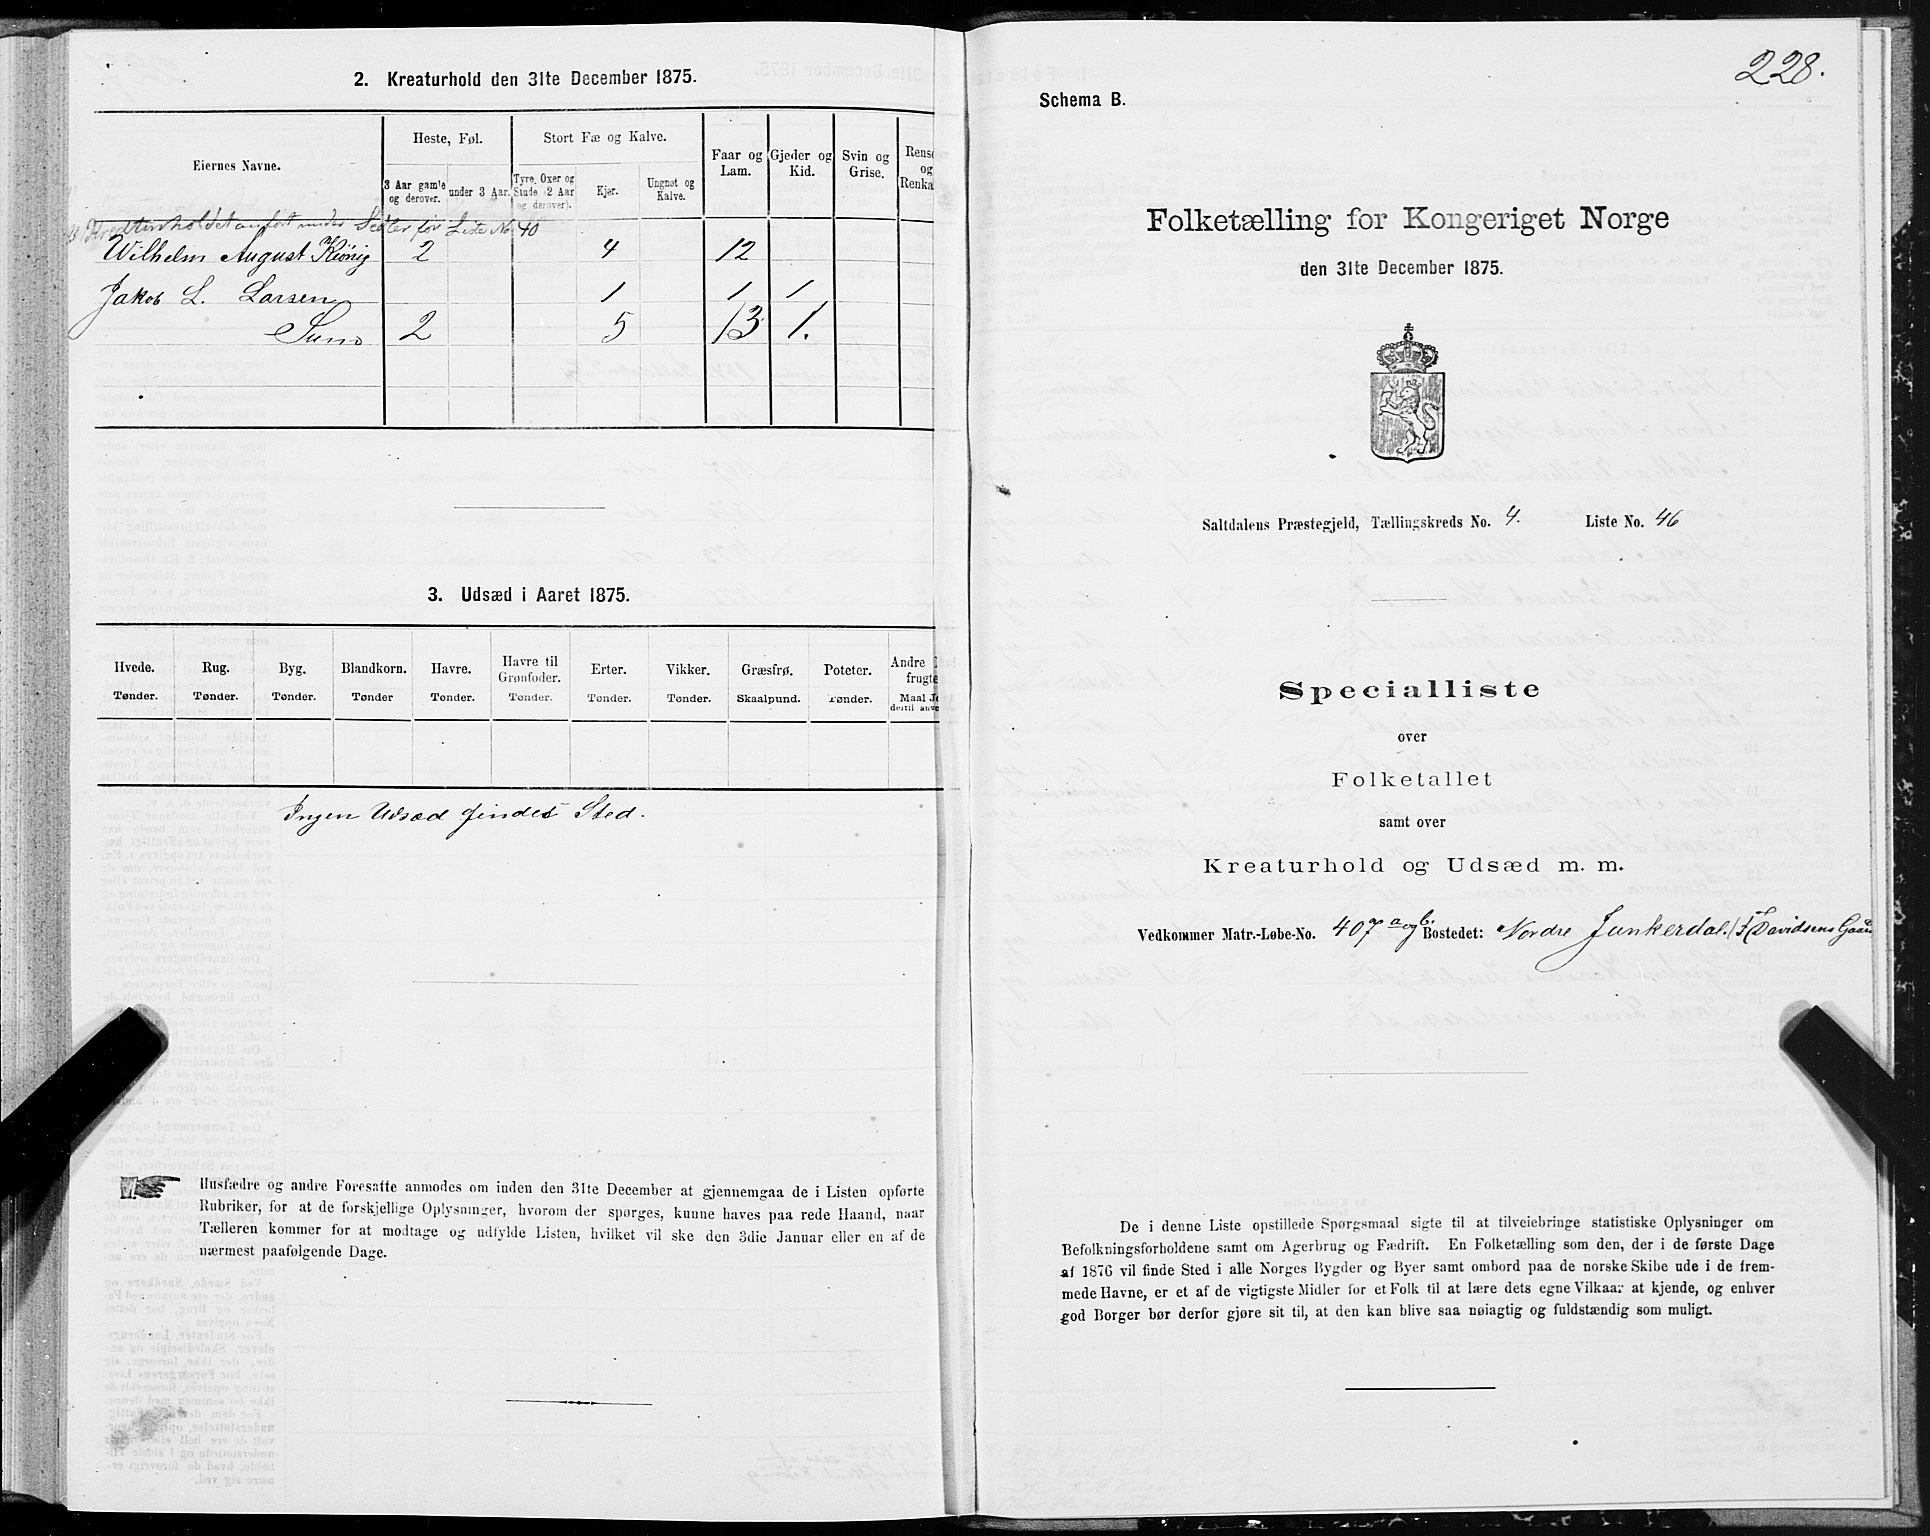 2. Kreaturhold den 31te December 1875.
Eiernes Navne.
Heste, Føl.
Stort Fæ og Kalve.
Faar og Lam.
Gjeder og Kid.
Svin og Grise.
og
3 Aar gamle og derover.
under 3 Aar.
Tyre, Oxer og Stude (2 Aar og derover).
Kjør.
Ungnøt og Kalve.
Kreaturholdet anført under Sedler for Liste No 40
Wilhelm August Kiönig 2 4 12
Jakob L. Larsen 1 1 1
Sum 2 5 13 1.
3. Udsæd i Aaret 1875.
Hvede. Rug. Byg. Blandkorn. Havre. Havre til Grønfoder. Erter. Vikker. Græsfrø. Poteter. Andre
Tønder. Tønder. Tønder. Tønder Tønder. Tønder. Tønder. Tønder. Skaalpund. Tønder. Maal
Ingen Udsæd finder Sted.
Husfædre og andre Foresatte anmodes om inden den 31te December at gjennemgaa de i Listen opførte
Rubriker, for at de forskjellige Oplysninger, hvorom der spørges, kunne haves paa rede Haand, naar
Tælleren kommer for at modtage og udfylde Listen, hvilket vil ske den 3die Januar eller en af de
nærmest paafølgende Dage.
228.
Schema B.
Folketælling for Kongeriget Norge
den 31te December 1875.
Saltdalens Præstegjeld, Tællingskreds No. 4. Liste No. 46
Specialliste
over
Folketallet
samt over
Kreaturhold og Udsæd m. m.
Vedkommer Matr.-Løbe-No. 407 a og b. Bostedet: Nordre Junkerdal. Davidsens Gaard
De i denne Liste opstillede Spørgsmaal sigte til at tilveiebringe statistiske Oplysninger om
Befolkningsforholdene samt om Agerbrug og Fædrift. En Folketælling som den, der i de første Dage
af 1876 vil finde Sted i alle Norges Bygder og Byer samt ombord paa de norske Skibe ude i de frem-
mede Havne, er et af de vigtigste Midler for et Folk til at lære dets egne Vilkaar at kjende, og enhver
god Borger bør derfor gjøre sit til, at den kan blive saa nøiagtig og fuldstændig som muligt.